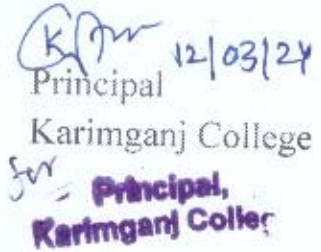 12/03/24
Principal
Karimganj College
for
Principal,
Karimganj Colleg